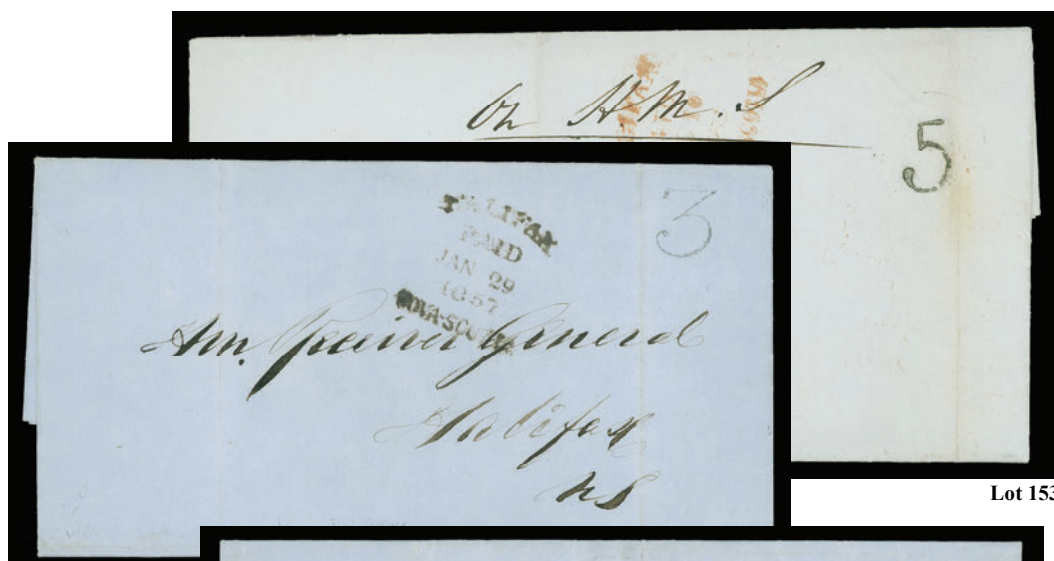 On H.M.S
5
3
HALIFAX
PAID
JAN 29
1857
NOVA SCOTIA
Hon. Receiver General
Halifax
NS
Lot 153